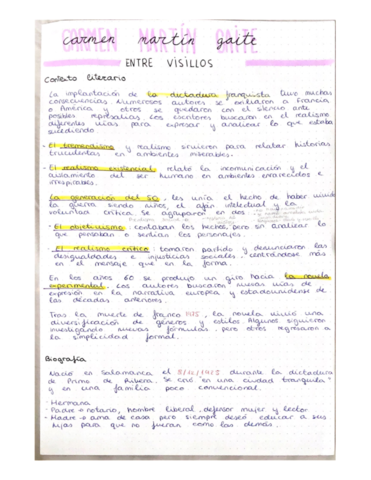 CARMEN MARTÍN GAITE
carmen martín gaite
ENTRE VISILLOS
Contexto literario
La implantación de la dictadura franquista tuvo muchas
consecuencias. Numerosos autores se exiliaron a Francia
o América y otros se quedaron con el silencio ante
posibles represalias. Los escritores buscaron en el realismo
diferentes vías para expresar y analizar lo que estaba
sucediendo
- El tremendismo y realismo sirvieron para relatar historias
truculentas en ambientes miserables.
- El realismo existencial relató la incomunicación y el
aislamiento del ser humano en ambientes enrarecidos e
irrespirables.
La generación del 50, les unía el hecho de haber vivido
la guerra siendo niños, el afán intelectual y la
voluntad crítica. Se agruparon en dos
- El objetivismo: contaban los hechos, pero sin analizar lo
que pensaban o sentían los personajes.
- El realismo crítico: tomaron partido y denunciaron las
desigualdades e injusticias sociales, centrándose más
en el mensaje que en la forma.
En los años 60 se produjo un giro hacia la novela
experimental. Los autores buscaron nuevas vías de
expresión en la narrativa europea y estadounidense de
las décadas anteriores.
Tras la muerte de Franco 1975, la novela vivió una
diversificación de géneros y estilos. Algunos siguieron
investigando nuevas formulas, pero otros regresaron a
la simplicidad formal.
Biografía
Nació en Salamanca el 8/12/1925 durante la dictadura
de Primo de Rivera. Se crió en una ciudad tranquila
y en una familia poco convencional.
- Hermana
- Padre → notario, hombre liberal, defensor mujer y lector
- Madre → ama de casa pero siempre deseó educar a sus
hijas para que no fueran como las demás.